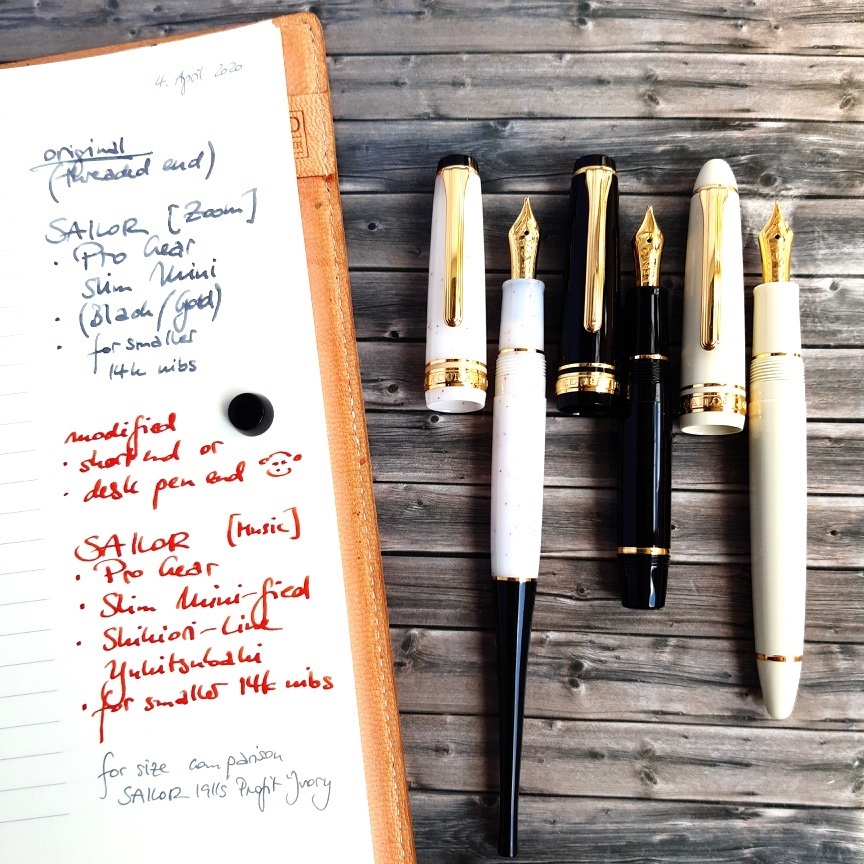 4. April 2020
original
(threaded end)
SAILOR [Zoom]
• Pro Gear
Slim Mini
• (Black/Gold)
• for smaller
14k nibs
modified
• short end or
• desk pen end
SAILOR [Music]
• Pro Gear
• Slim Mini-fied
• Shikiori-Line
Yukitsubaki
• for smaller 14k nibs
for size comparison
SAILOR 1911s Profit Ivory